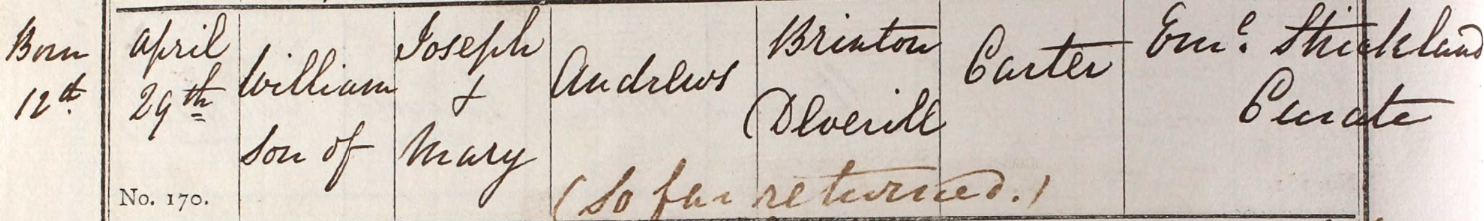 Born
12th
April
29th
No. 170.
William
son of
Joseph
&
Mary
Andrews
Brixton
Deverill
Carter
Eml. Strickland
Curate
(So far returned.)